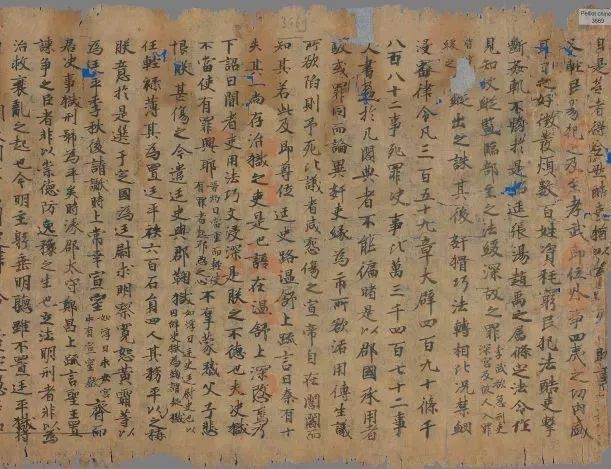 文輕且易犯及至孝武即位外事四夷之功内盛
耳目之好徵發煩數百姓貧耗窮民犯法酷吏擊
斷姦軌不勝於是進張湯趙禹之屬條定法令作
見知故縱監臨部主之法緩深故之罪孝武欲急刑吏深害故入人罪
緩之縱出之誅其後姧猾巧法轉相比况禁網
浸密律令凡三百五十九章大辟四百九十條千
八百八十二事死罪决事比萬三千四百七十二事
文書盈於几閣典者不能徧睹是以郡國承用者
駮或罪同而論異姧吏緣為市所欲活則傅生議
所欲陷則予死比議者咸冤傷之宣帝自在閭閻而
知其若此及即尊位廷史路温舒上疏言曰秦有十
失其一尚存治獄之吏是也語在温舒上深愍焉乃
下詔曰間者吏用法巧文浸深是朕之不德也夫决獄
不當使有罪興耶不辜蒙戮父子悲
恨朕甚傷之今遣廷史與郡鞫獄
任輕禄薄其為置廷平秩六百石員四人其務平之以稱
朕意於是選于定國為廷尉求明察寬恕黄霸等以
為廷平季秋後請讞時上常幸宣室齋而
居决事獄刑號為平矣時涿郡太守鄭昌上疏言聖王置
諫爭之臣者非以崇德防逸豫之生也立法明刑者非以為
治救衰亂之起也今明主躬垂明聽雖不置廷平獄將
3669
Pelliot chinois
3669